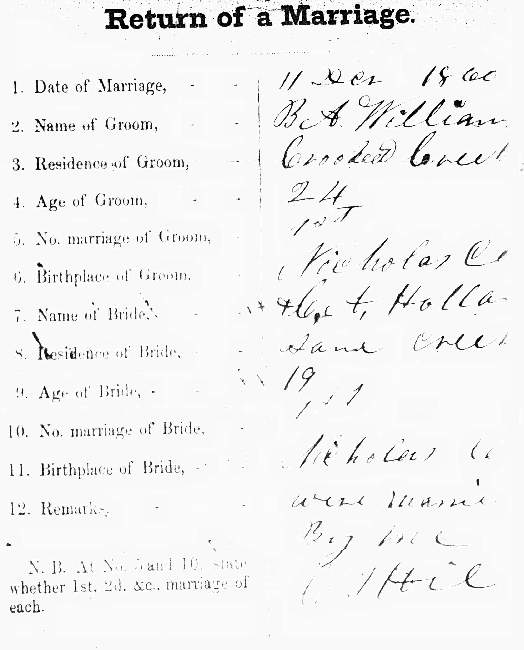 Return of a Marriage.
1. Date of Marriage, - - 11 Dec 1860
2. Name of Groom, - - B A William
3. Residence of Groom, - Crooked Creek
4. Age of Groom, - - 24
5. No. marriage of Groom, - 1st
6. Birthplace of Groom, - Nicholas Co
7. Name of Bride, - - Holla
8. Residence of Bride, - Sand Creek
9. Age of Bride, - - 19
10. No. marriage of Bride, - 1st
11. Birthplace of Bride, - - Nicholas Co
12. Remarks, - - were marrie
By me
Hil
N. B. At No. 5 and 10, state
whether 1st, 2d, &c., marriage of
each.